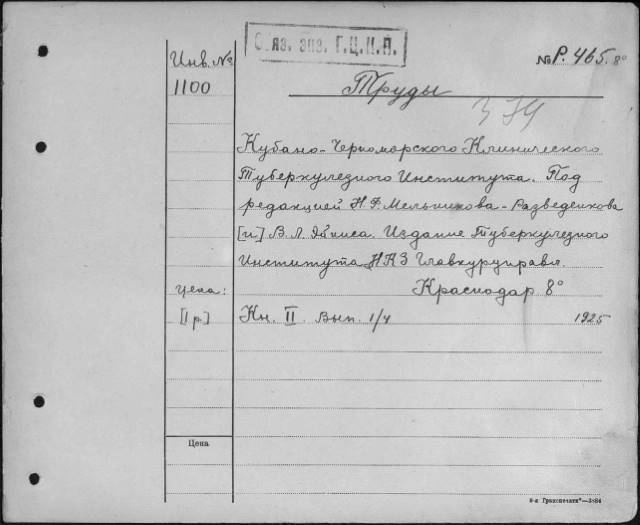 Инв. №
1100
Обяз. экз. Г.Ц.К.П.
№ Р. 465. 8°
Труды
374
Кубано-Черноморского Клинического
Туберкулезного Института. Под
редакцией Н.Ф. Мельникова-Разведенкова
[и] В.Л. Эйниса. Издание Туберкулезного
Института НКЗ Главкурупра.
Краснодар 8°
цена:
[1 р.]
Кн. II. Вып. 1/4 1925
Цена